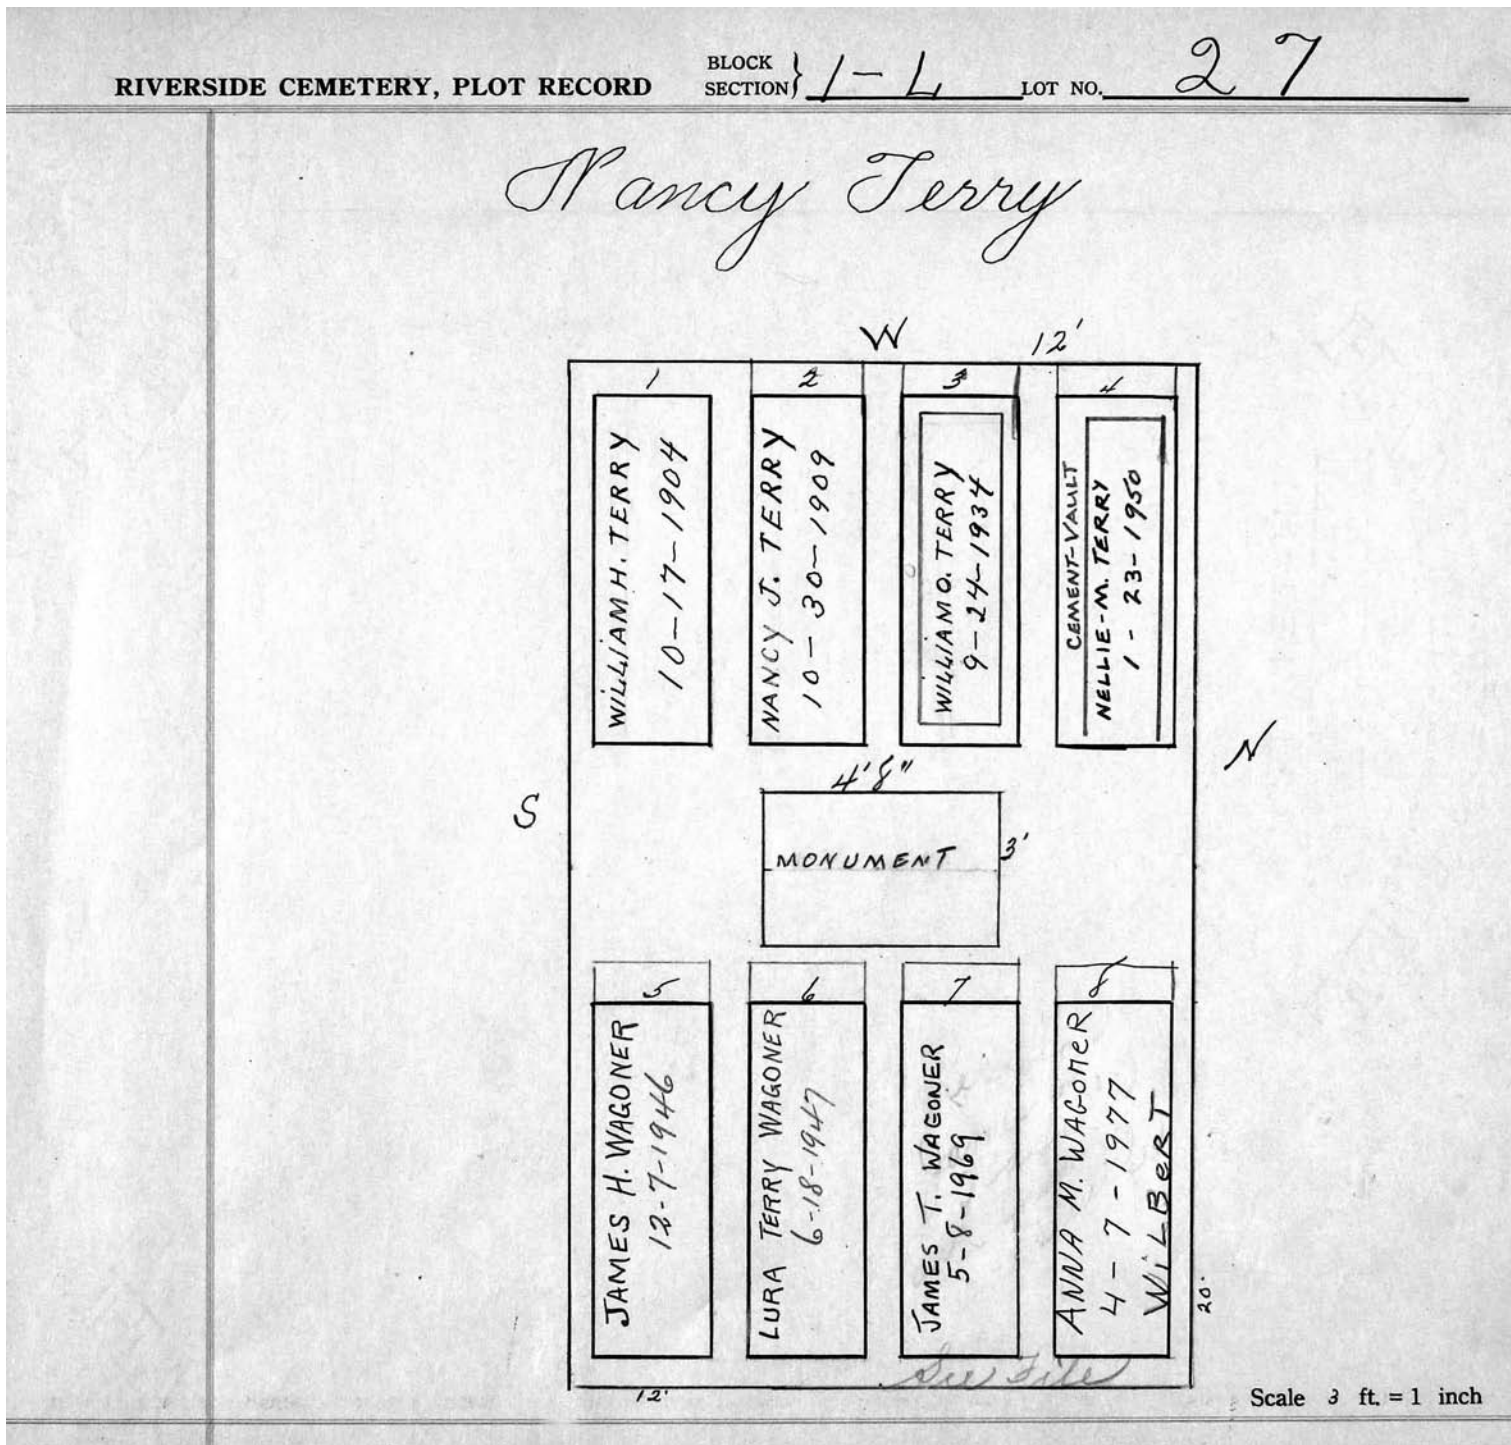 RIVERSIDE CEMETERY, PLOT RECORD BLOCK SECTION } 1-L LOT NO. 27
Nancy Terry
W 12'
1
WILLIAM H. TERRY
10-17-1904
2
NANCY J. TERRY
10-30-1909
3
WILLIAM O. TERRY
9-24-1934
4
CEMENT-VAULT
NELLIE-M. TERRY
1-23-1950
S
N
4'8"
MONUMENT
3'
5
JAMES H. WAGONER
12-7-1946
6
LURA TERRY WAGONER
6-18-1947
7
JAMES T. WAGONER
5-8-1969
8
ANNA M. WAGONER
4-7-1977
WILBERT
20'
See File
12'
Scale 3 ft. = 1 inch